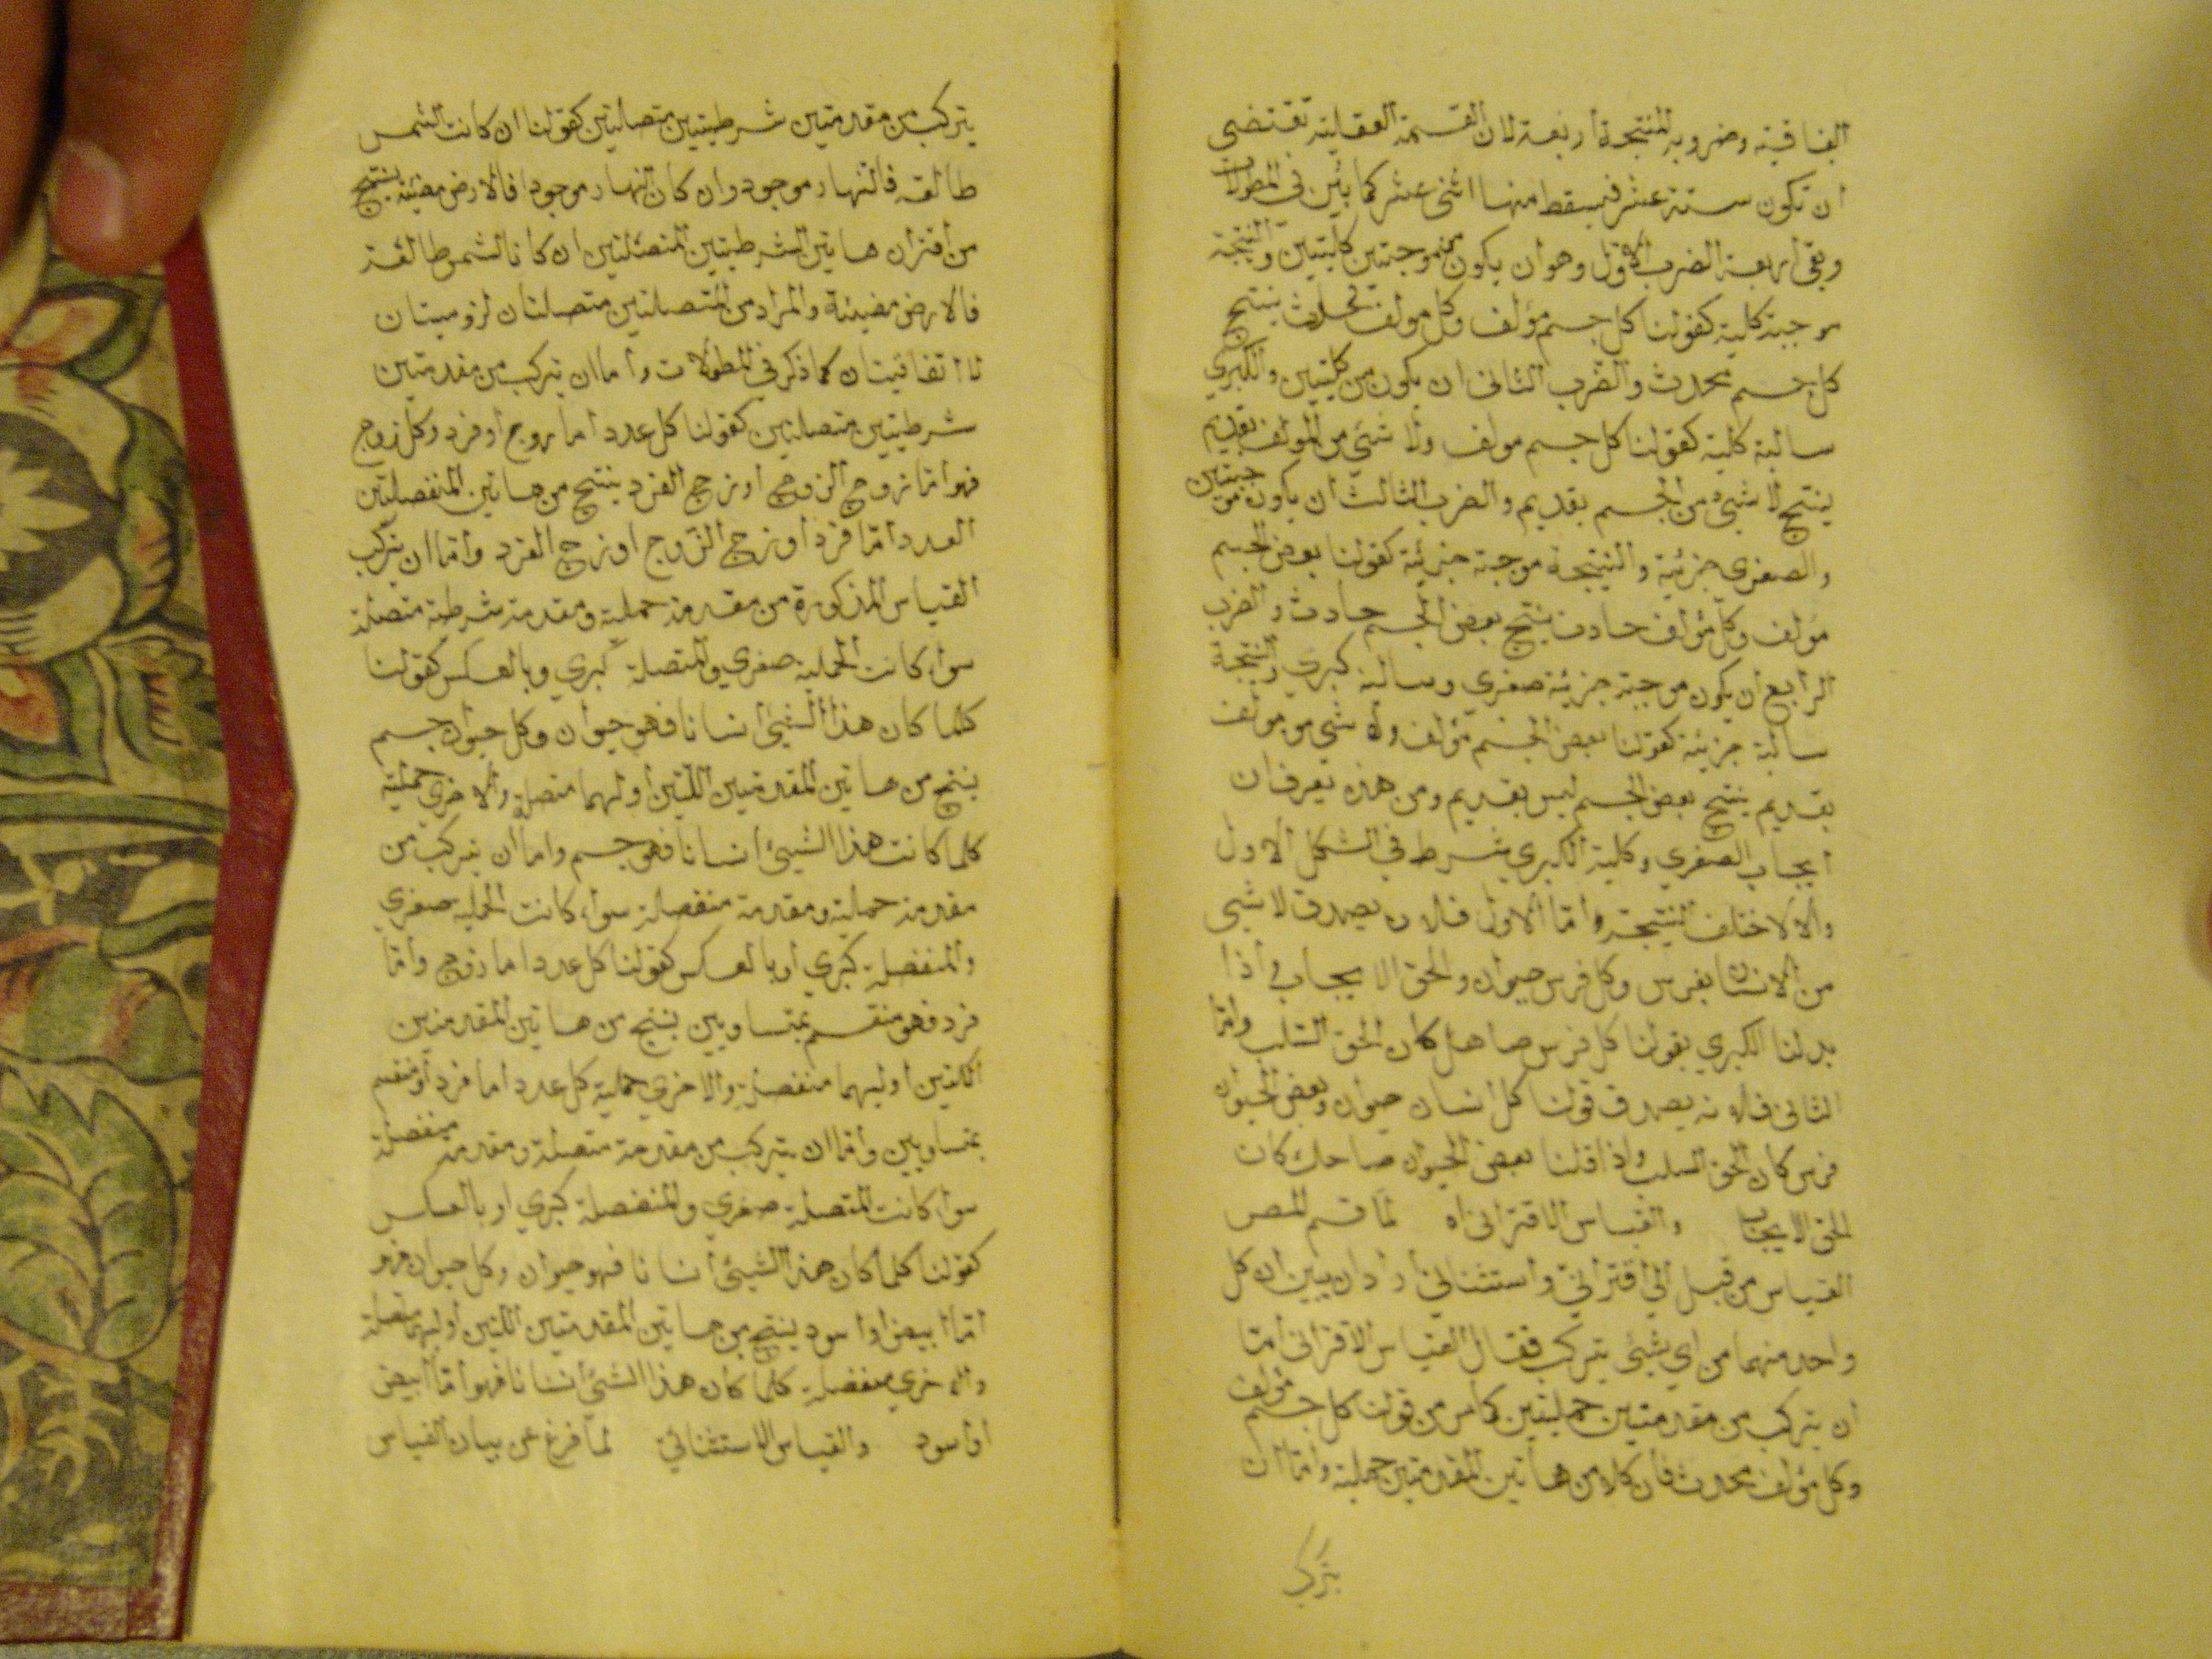 الباقية وضروبه المنتجة أربعة لان القسمة العقلية تقتضى
ان تكون ستة عشر فيسقط منها اثنى عشر كما بيّن فى المطولات
وبقى أربعة الضرب الأوّل وهو ان يكون من موجبتين كليتين والنتيجة
موجبة كلية كقولنا كل جسم مؤلف وكل مولف محدث ينتج
كل جسم محدث والضرب الثانى ان يكون من كليتين والكبري
سالبة كلية كقولنا كل جسم مولف ولا شئ من المولف بقديم
ينتج لا شئ من الجسم بقديم والضرب الثالث أن يكون من موجبتين
والصغرى جزئية والنتيجة موجبة جزئية كقولنا بعض الجسم
مؤلف وكل مؤلف حادث ينتج بعض الجسم حادث والضرب
الرابع أن يكون موجبة جزئية صغري وسالبة كبري والنتيجة
سالبة جزئية كقولنا بعض الجسم مؤلف ولا شئ من مولف
بقديم ينتج بعض الجسم ليس بقديم ومن هذه يعرف ان
ايجاب الصغري وكلية الكبري شرط في الشكل الاول
والا لاختلف النتيجة واما الاول فلان يصدق لا شئ
من الانسان بفرس وكل فرس حيوان والحق الايجاب واذا
بدلنا الكبري بقولنا كل فرس صاهل كان الحق السلب وامّا
الثانى فلانه يصدق قولنا كل انسان حيوان وبعض الحيوان
فرس كان الحق السلب واذا قلنا بعض الحيوان ضاحك كان
الحق الايجاب والقياس الاقترانى اه لمّا قسم المص
القياس من قبل الي اقترانيّ واستثنائيّ أراد ان يبين ان كل
واحد منهما من اي شئ يتركب فقال القياس الاقترانى امّا
أن يتركب من مقدمتين حمليتين كما مر من قولنا كل جسم مؤلف
وكل مؤلف محدث فان كلا من هاتين المقدمتين حملية وامّا ان
يتركب
يتركب من مقدمتين شرطيتين متصلتين كقولنا ان كانت الشمس
طالعة فالنهار موجود وان كان النهار موجودا فالارض مضيئة ينتج
من اقتران هاتين الشرطيتين المتصلتين ان كانت الشمس طالعة
فالارض مضيئة والمراد من المتصلتين متصلتان لزوميتان
لا اتفاقيتان كما ذكر في المطولات وأما ان يتركب من مقدمتين
شرطيتين متصلتين كقولنا كل عدد أما زوج أو فرد وكل زوج
فهو امّا زوج الزوج او زوج الفرد ينتج من هاتين المنفصلتين
العدد امّا فرد أو زوج الزّوج او زوج الفرد وامّا ان يتركب
القياس المذكورة من مقدمة حملية ومقدمة شرطية متصلة
سواء كانت الحملية صغري والمتصلة كبري وبالعكس كقولنا
كلما كان هذا الشيئ انسانا فهو حيوان وكل حيوان جسم
ينتج من هاتين المقدمتين اللتين أولهما متصلة والاخري حملية
كلما كانت هذا الشيئ أنسانا فهو جسم واما أن يتركب من
مقدمة حملية ومقدمة منفصلة سواء كانت الحملية صغري
والمنفصلة كبري أو بالعكس كقولنا كل عدد اما زوج وامّا
فرد فهو منقسم بمتساويين ينتج من هاتين المقدمتين
اللتين أوليهما منفصلة والاخري حملية كل عدد اما فرد أو منقسم
بمتساويين وامّا ان يتركب من مقدمة متصلة ومقدمة منفصلة
سواء كانت المتصلة صغري والمنفصلة كبري او بالعكس
كقولنا كلما كان هذا الشيئ أنسانا فهو حيوان وكل حيوان فهو
امّا ابيض او اسود ينتج من هاتين المقدمتين اللتين أوليهما متصلة
والاخري منفصلة كلما كان هذا الشئ أنسانا فهو أمّا ابيض
أو أسود والقياس الاستثنائيّ لمّا فرغ عن بيان القياس